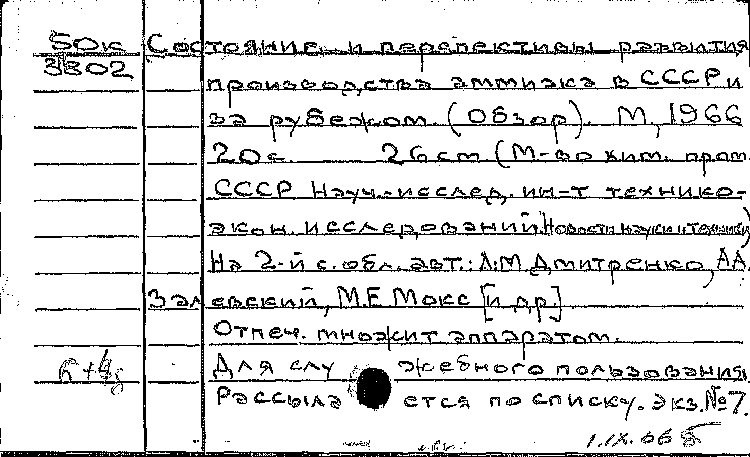 50к Состояние и перспективы развития
3802
производства аммиака в СССР и
за рубежом. (Обзор). М, 1966
20с. 26 cm (М-во хим. пром.
СССР Науч.-исслед. ин-т технико-
экон. исследований. Новости науки и техники)
На 2-й с. обл. авт.: А.М. Дмитренко, А.А.
Залевский, М.Е. Мокс [и др.]
Отпеч. множит аппаратом.
Для служебного пользования.
Рассылается по списку. Экз. №7.
1.IX.66